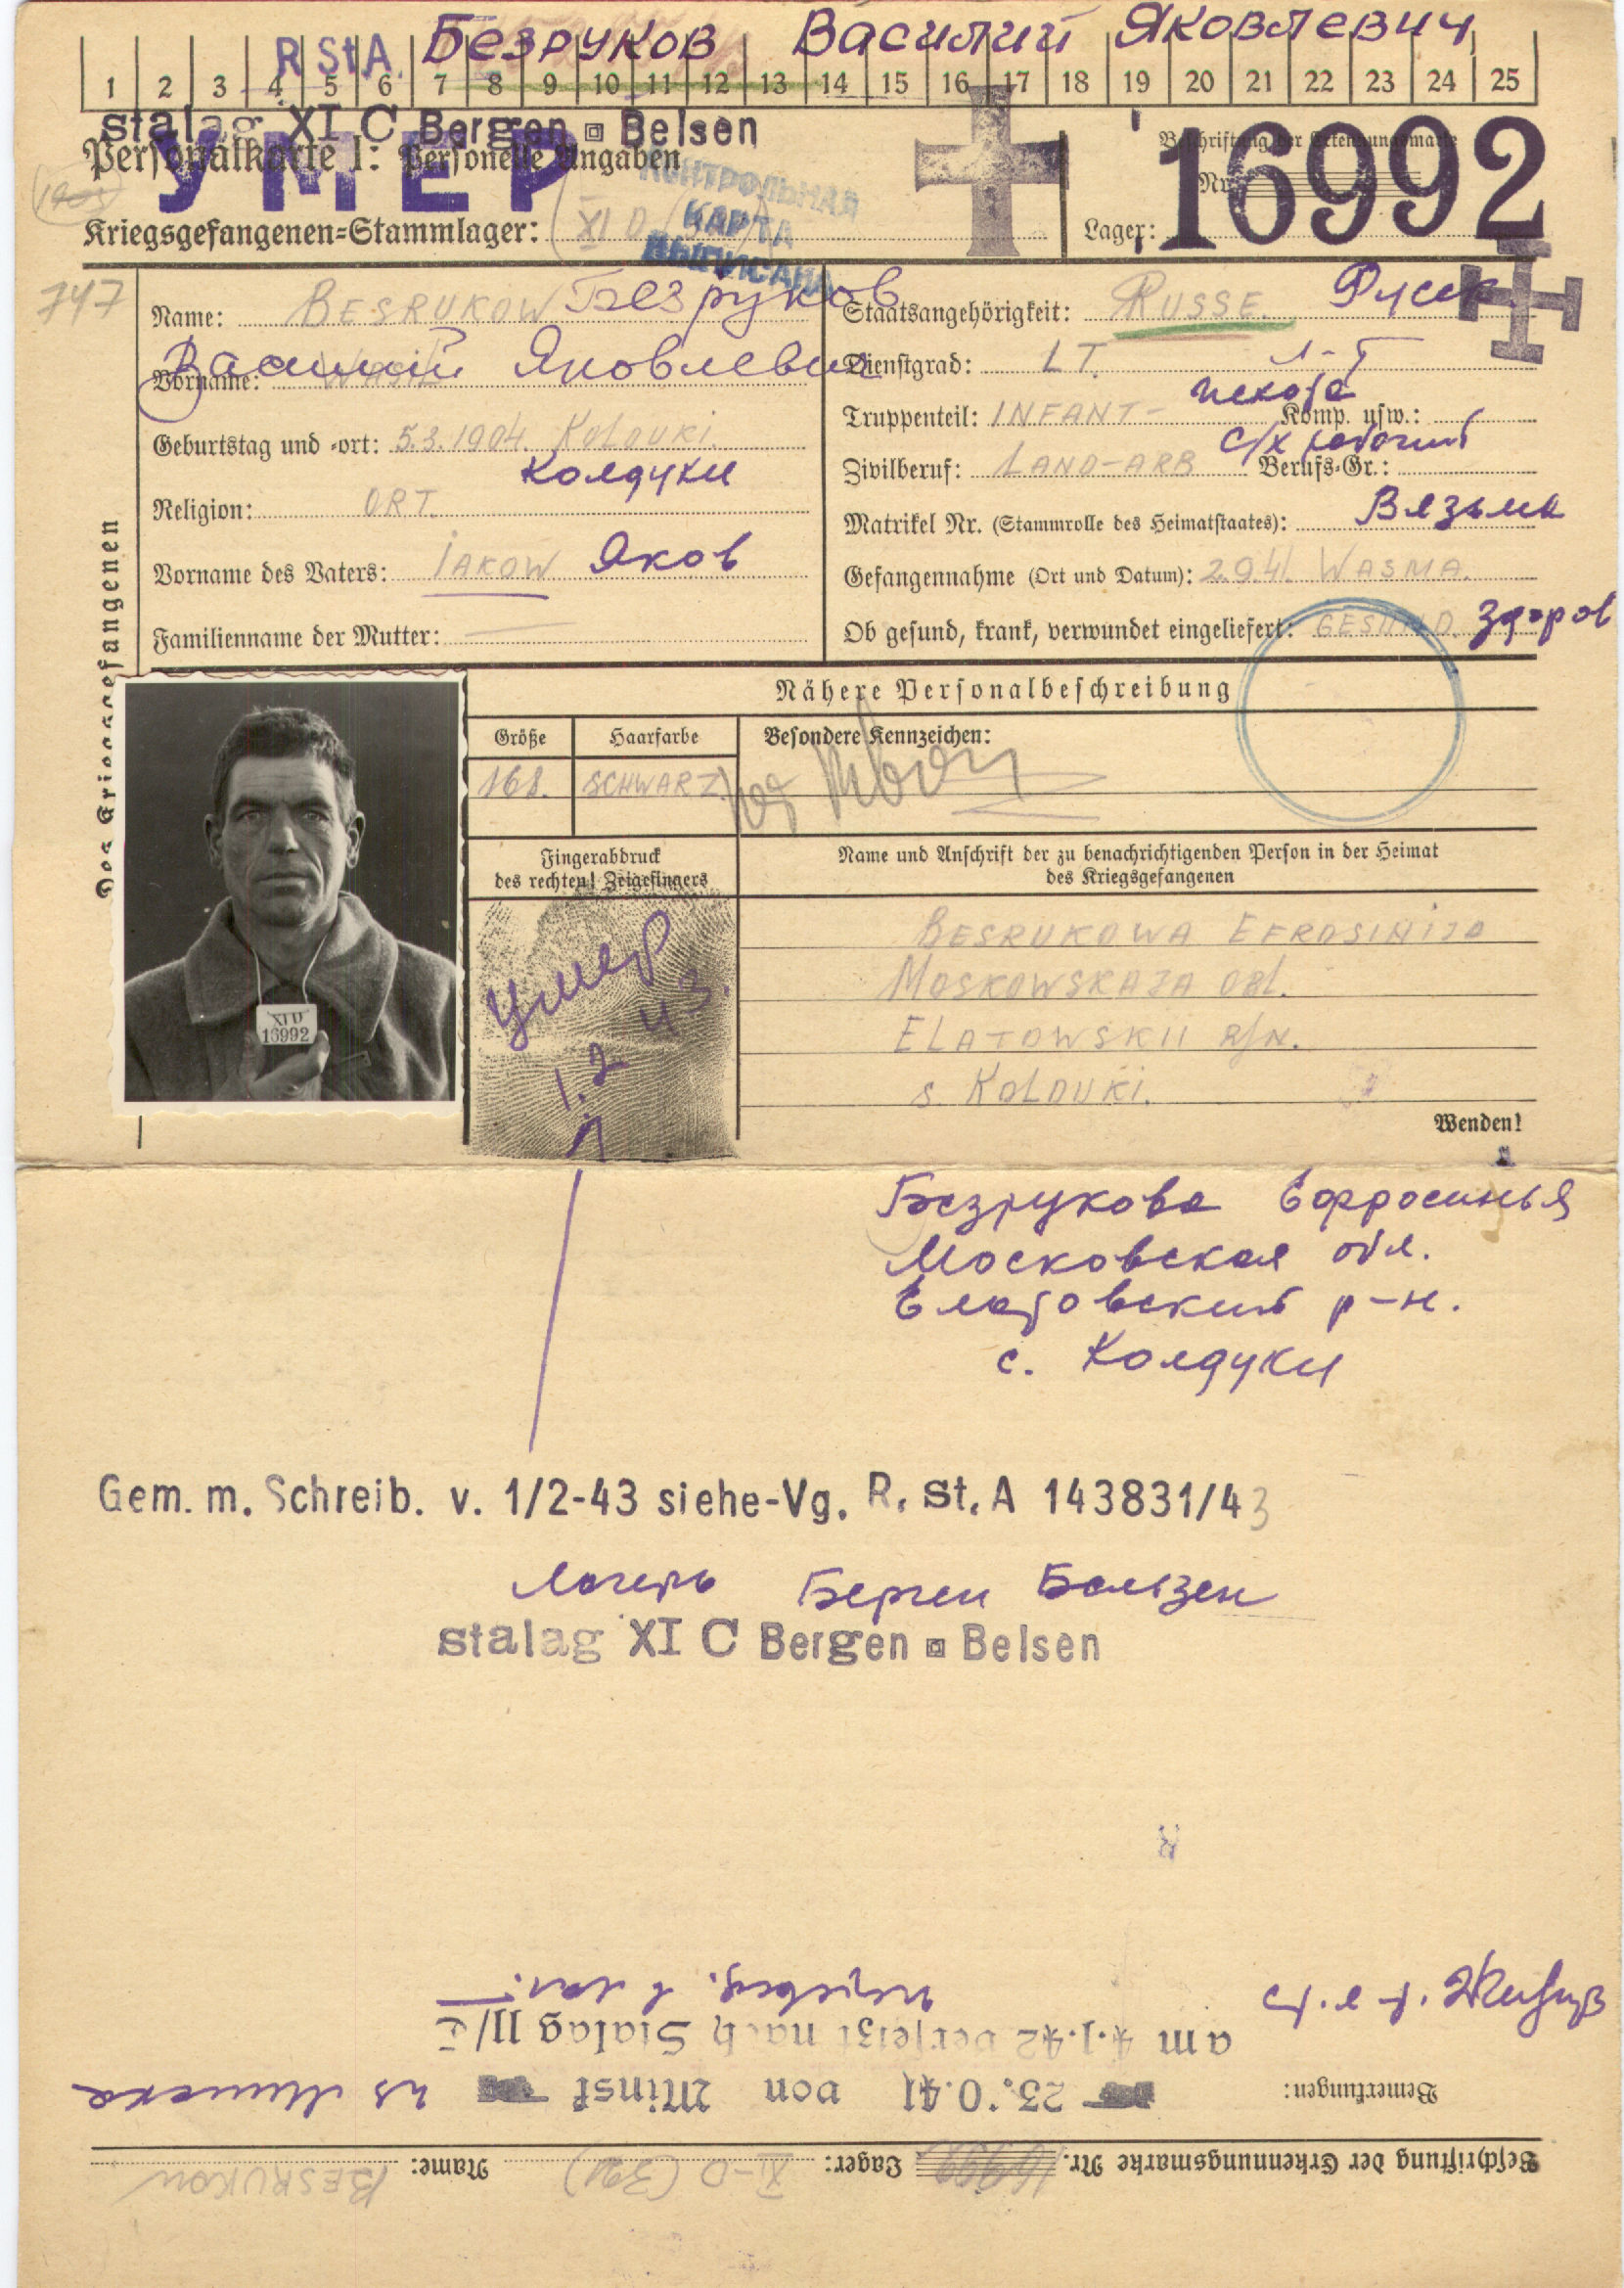 R St A. Безруков Василий Яковлевич
1 2 3 4 5 6 7 8 9 10 11 12 13 14 15 16 17 18 19 20 21 22 23 24 25
stalag XI C Bergen Belsen
Personalkarte I: Personelle Angaben
УМЕР
КОНТРОЛЬНАЯ
КАРТА
ВЫПИСАНА
Beschriftung der Erkennungsmarke
Nr. 16992
Kriegsgefangenen-Stammlager: XI D
Lager:
747
Des Kriegsgefangenen
Name: BESRUKOW Безруков
Василий Яковлевич
Vorname: WASIL
Geburtstag und -ort: 5.3.1904. KOLDUKI.
Колдуки
Religion: ORT.
Vorname des Vaters: IAKOW Яков
Familienname der Mutter: —
Staatsangehörigkeit: RUSSE. Русск.
Dienstgrad: LT. Л-Т
Truppenteil: INFANT- пехота Komp. usw.:
Zivilberuf: LAND-ARB с/х рабочий Berufs-Gr.:
Matrikel Nr. (Stammrolle des Heimatstaates): Вязьма
Gefangennahme (Ort und Datum): 2.9.41. WASMA.
Ob gesund, krank, verwundet eingeliefert: GESUND. Здоров
Nähere Personalbeschreibung
Größe
Haarfarbe
Besondere Kennzeichen:
168.
SCHWARZ.
Fingerabdruck
des rechten! Zeigefingers
Name und Anschrift der zu benachrichtigenden Person in der Heimat
des Kriegsgefangenen
XI D
16992
умер
1.2 43.
BESRUKOWA EFROSINIJA
MOSKOWSKAJA OBL.
ELATOWSKII R/N.
S. KOLDUKI.
Wenden!
Безрукова Ефросинья
Московская обл.
Елатовский р-н.
с. Колдуки
Gem. m. Schreib. v. 1/2-43 siehe-Vg. R. St. A 143831/43
Лагерь Берген Бельзен
stalag XI C Bergen Belsen
Beschriftung der Erkennungsmarke Nr. 16992 Lager: XI-D (321) Name: BESRUKOW
Bemerkungen:
23.10.41 von Minsk из Минска
am 4.1.42 versetzt nach Stalag 11/C